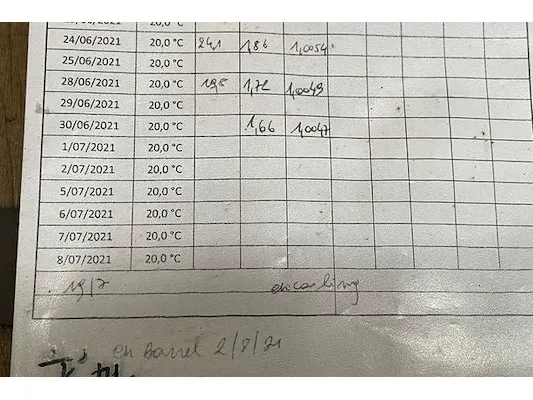 24/06/2021 20,0 °C 24,1 1,86 1,0054
25/06/2021 20,0 °C
28/06/2021 20,0 °C 19,5 1,72 1,0049
29/06/2021 20,0 °C
30/06/2021 20,0 °C 1,66 1,0047
1/07/2021 20,0 °C
2/07/2021 20,0 °C
5/07/2021 20,0 °C
6/07/2021 20,0 °C
7/07/2021 20,0 °C
8/07/2021 20,0 °C
19/7
en Barrel 2/8/21